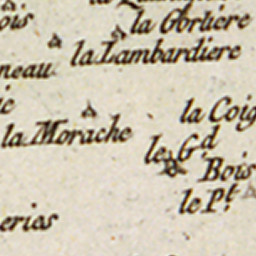 ois
la Gorliere
la Lambardiere
neau
ie
la Coig
la Morache
le G.d
Bois
le P.t
eries